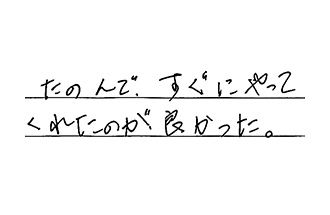 たのんで、すぐにやって
くれたのが良かった。